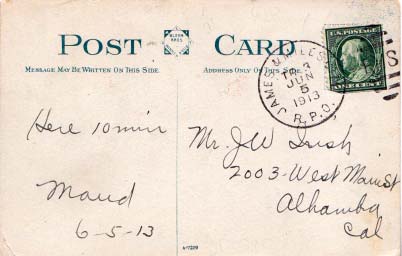 POST CARD
MESSAGE MAY BE WRITTEN ON THIS SIDE.
ADDRESS ONLY ON THIS SIDE.
U.S. POSTAGE
ONE CENT
TR 3
JUN
5
1913
R.P.O.
Here 10 min
Maud
6-5-13
Mr. JW Irish
2003-West Main St
Alhambra
Cal